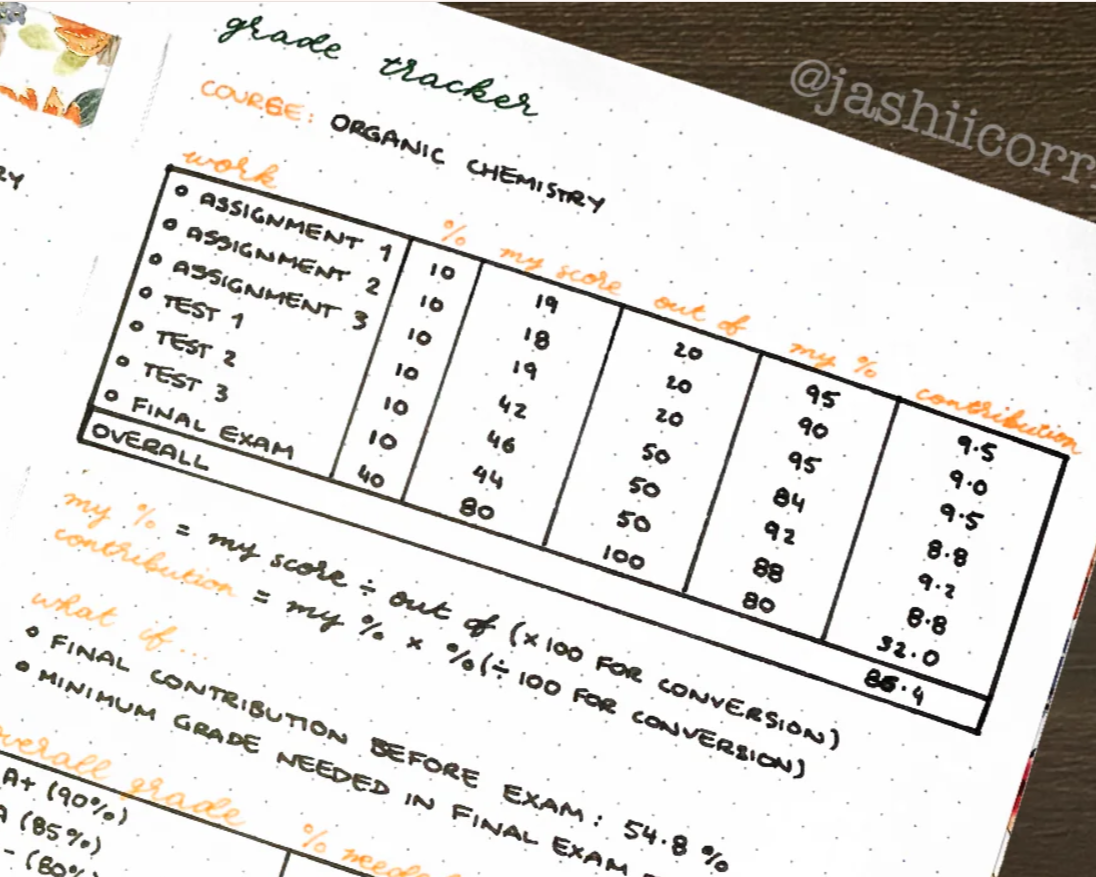 grade tracker
@jashiicorr
COURSE: ORGANIC CHEMISTRY
work % my score out of my % contribution
• ASSIGNMENT 1 10 19 20 95 9.5
• ASSIGNMENT 2 10 18 20 90 9.0
• ASSIGNMENT 3 10 19 20 95 9.5
• TEST 1 10 42 50 84 8.8
• TEST 2 10 46 50 92 9.2
• TEST 3 10 44 50 88 8.8
• FINAL EXAM 40 80 100 80 32.0
OVERALL 86.4
my % = my score ÷ out of (×100 FOR CONVERSION)
contribution = my % × % (÷100 FOR CONVERSION)
what if...
• FINAL CONTRIBUTION BEFORE EXAM: 54.8 %
• MINIMUM GRADE NEEDED IN FINAL EXAM
overall grade % neede
A+ (90%)
A (85%)
- (80%
RY